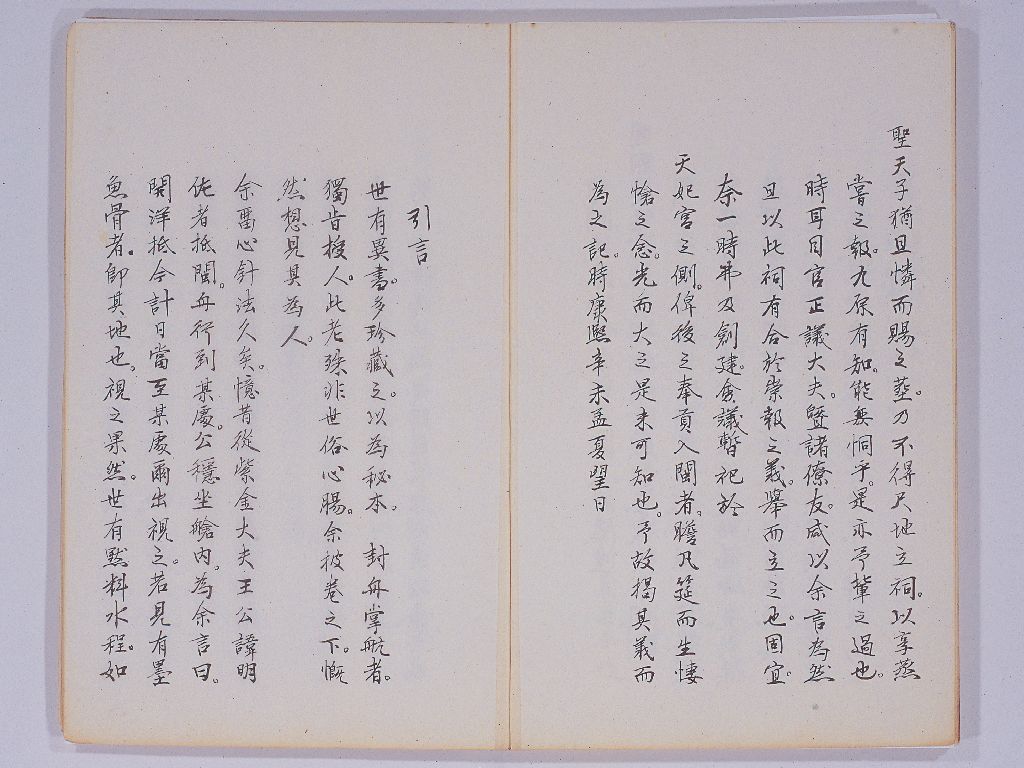 聖天子猶且憐而賜之塋。乃不得尺地立祠。以享烝
嘗之報。九原有知。能無恫乎。是亦予輩之過也。
時耳目官正議大夫。曁諸僚友。咸以余言為然
且以此祠有合於崇報之義。舉而立之也。固宜。
奈一時弗及創建。僉議暫祀於
天妃宮之側。俾後之奉貢入閩者。瞻几筵而生悽
愴之念。光而大之是未可知也。予故揭其義而
為之記。時康熙辛未孟夏望日
引言
世有異書。多珍藏之。以為秘本。 封舟掌舵者。
獨肯授人。此老殊非世俗心腸。余披卷之下。慨
然想見其為人。
余畱心針法久矣。憶昔從紫金大夫王公諱明
佐者抵閩。舟行到某處。公穩坐艙內。為余言曰。
開洋抵今計日當至某處爾出視之。若見有墨
魚骨者。即其地也。視之果然。世有熟料水程。如